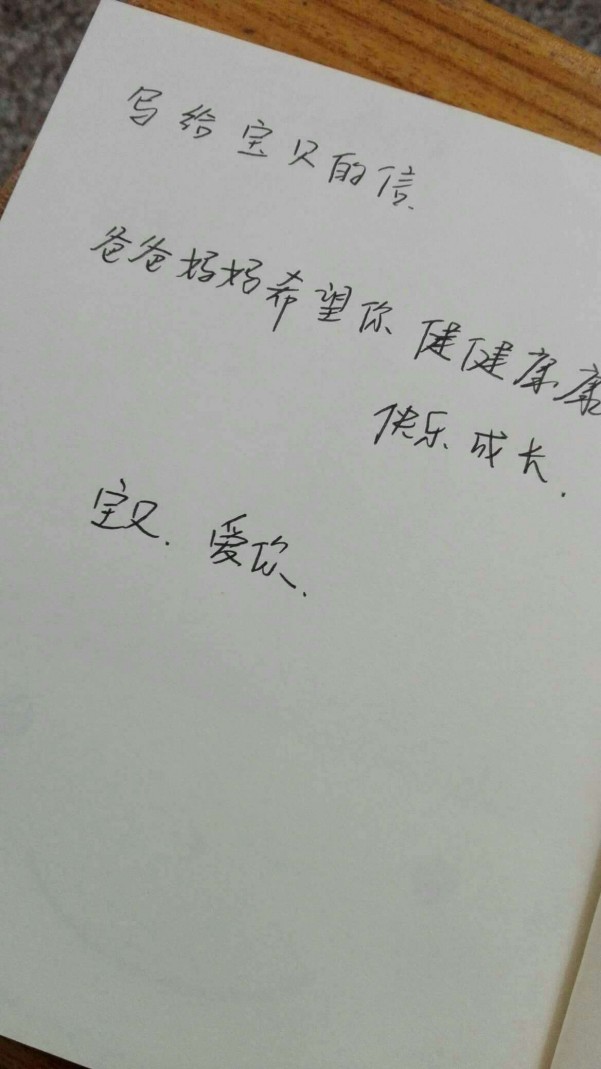 写给宝贝的信.
爸爸妈妈希望你健健康康
快乐成长.
宝贝.爱你.